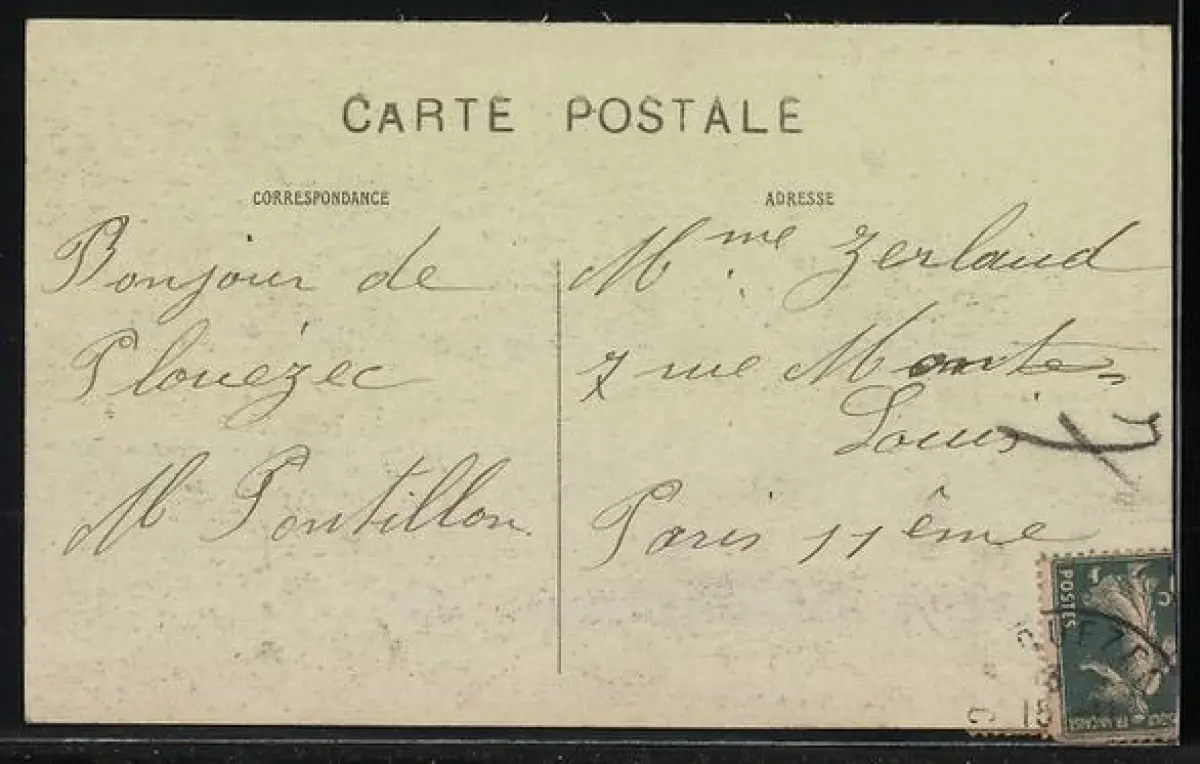 CARTE POSTALE
CORRESPONDANCE
Bonjour de
Plouézec
M Pontillon
ADRESSE
Mme Zerlaud
7 rue Monte-
Louis
Paris 11ême
POSTES
FRANÇAISE
15